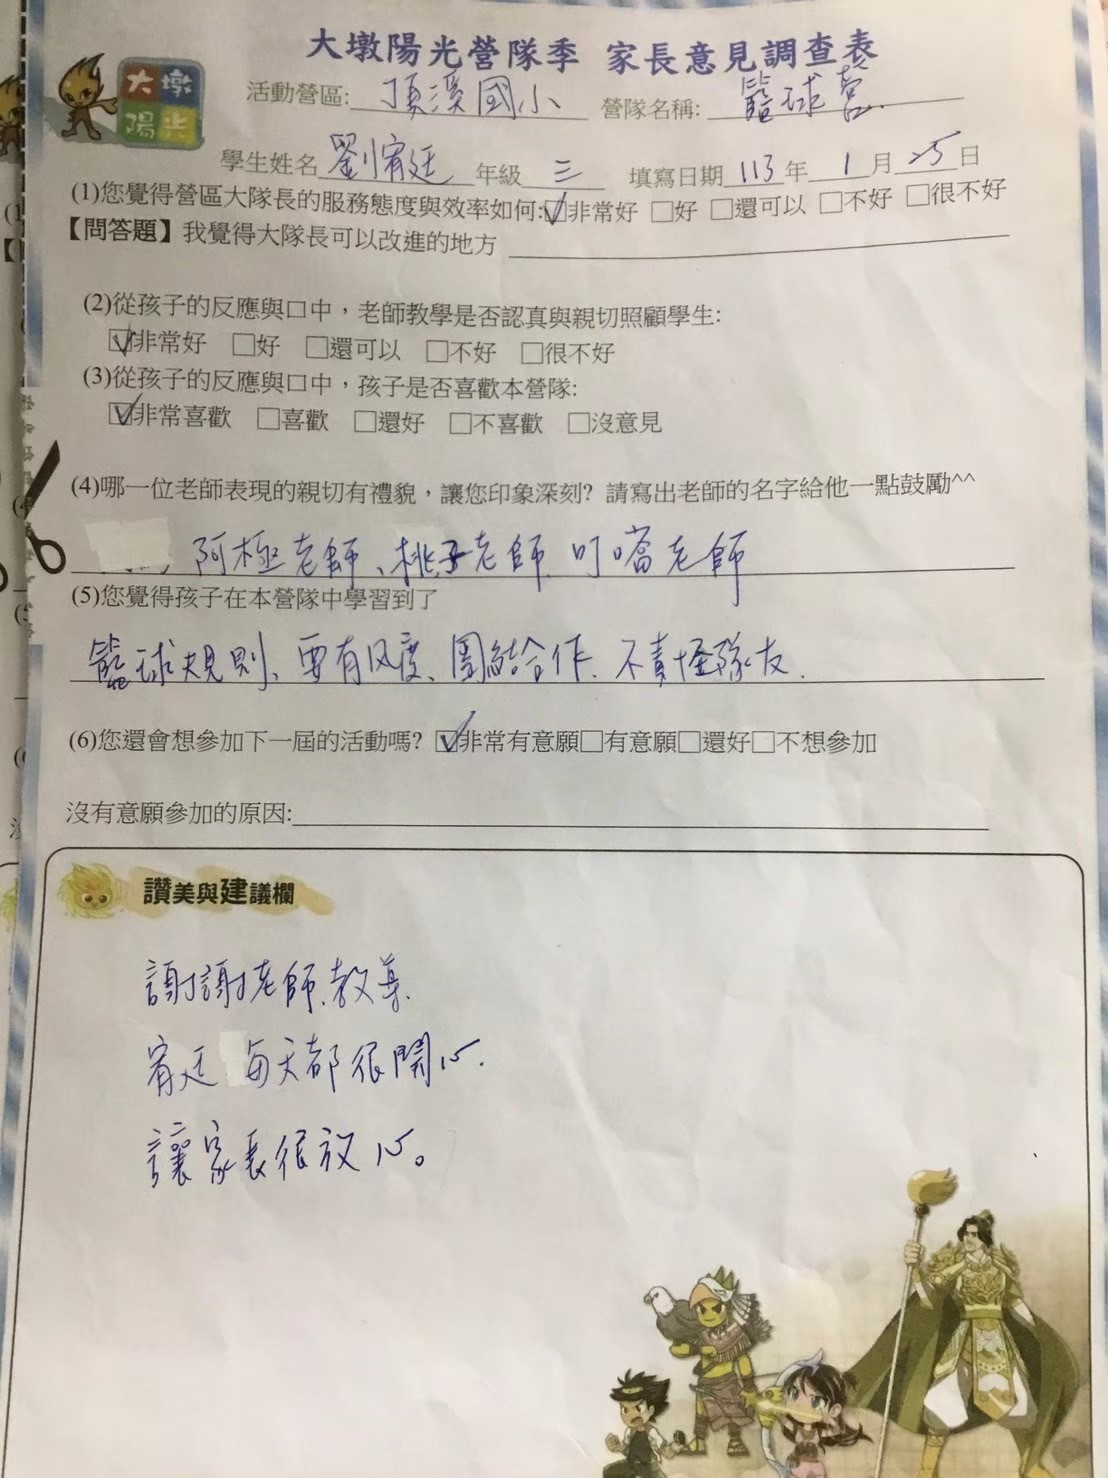 大墩陽光營隊季 家長意見調查表
大墩
陽光
活動營區: 頂溪國小 營隊名稱: 籃球營
學生姓名 劉宥廷 年級 三 填寫日期 113 年 1 月 25 日
(1)您覺得營區大隊長的服務態度與效率如何:☑非常好 □好 □還可以 □不好 □很不好
【問答題】我覺得大隊長可以改進的地方
(2)從孩子的反應與口中，老師教學是否認真與親切照顧學生:
☑非常好 □好 □還可以 □不好 □很不好
(3)從孩子的反應與口中，孩子是否喜歡本營隊:
☑非常喜歡 □喜歡 □還好 □不喜歡 □沒意見
(4)哪一位老師表現的親切有禮貌，讓您印象深刻? 請寫出老師的名字給他一點鼓勵^^
阿極老師、桃子老師、叮噹老師
(5)您覺得孩子在本營隊中學習到了
籃球規則、要有风度、團結合作、不責怪隊友.
(6)您還會想參加下一屆的活動嗎? ☑非常有意願□有意願□還好□不想參加
沒有意願參加的原因:
讚美與建議欄
謝謝老師教導.
宥廷 每天都很開心.
讓家長很放心。